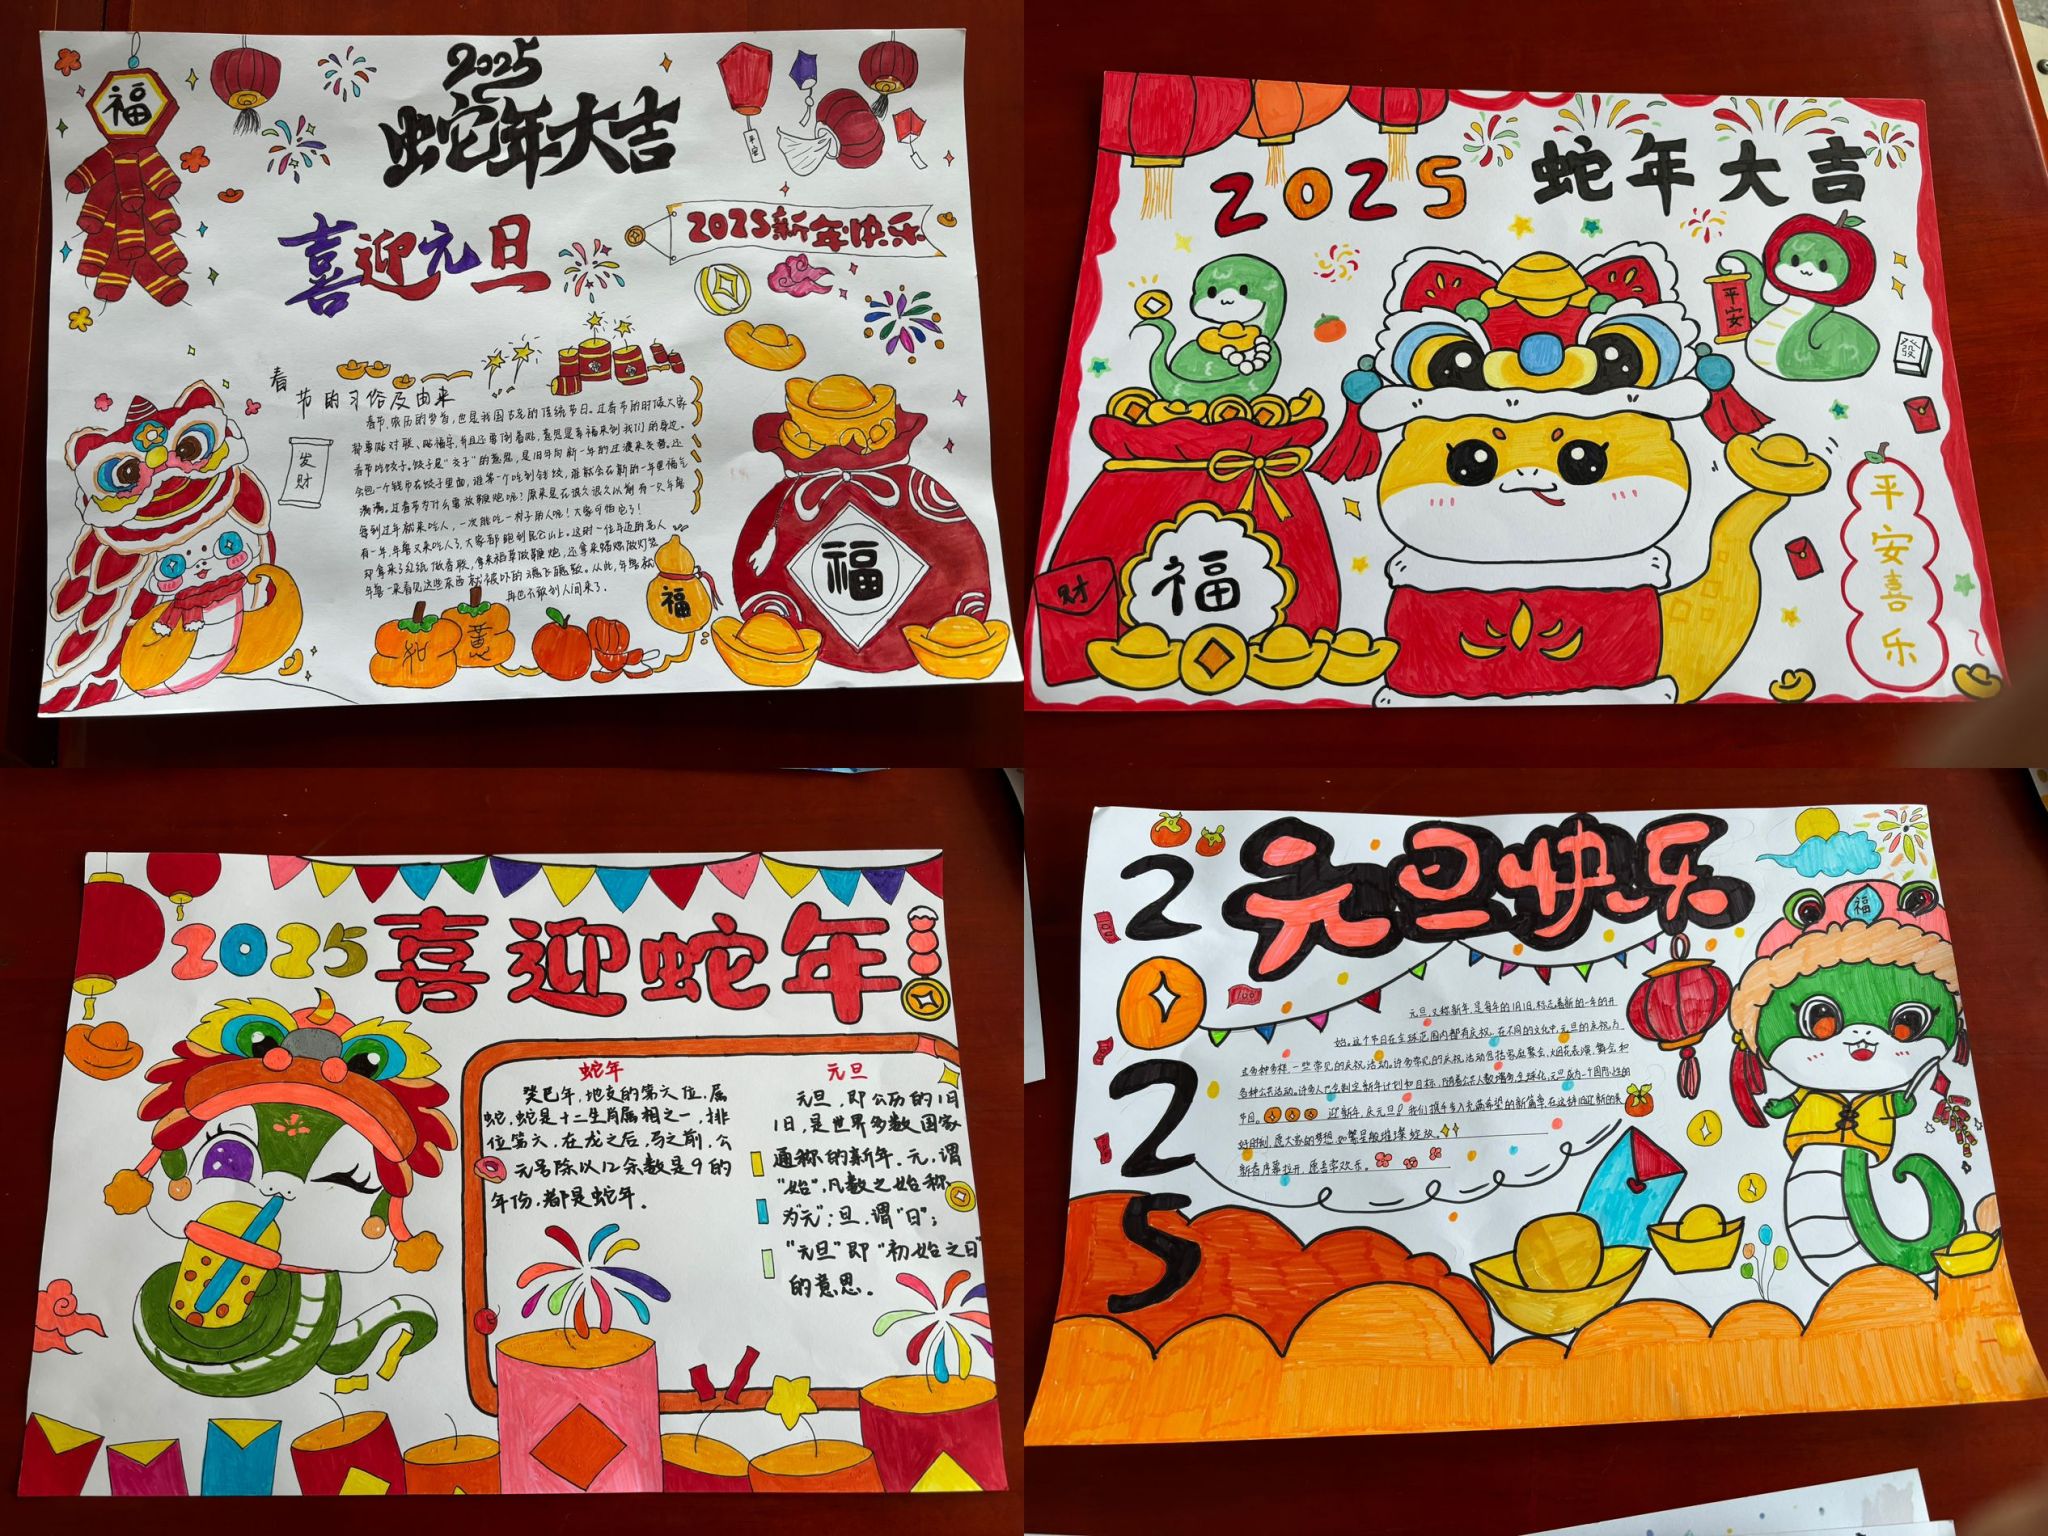 福
2025
蛇年大吉
平安
喜迎元旦
2025新年快乐
春节的习俗及由来
发财
春节,农历的岁首,也是我国古老的传统节日。过春节的时候大家
都要贴对联、贴福字,并且还要倒着贴,意思是幸福来到我们的身边。
春节吃饺子。饺子是“交子”的意思,是旧年向新一年的过渡来交替。还
会包一个钱币在饺子里面,谁第一个吃到钱饺,谁就会在新的一年里福气
满满。过春节为什么要放鞭炮呢?原来是在很久很久以前有一只年兽
每到过年就来吃人,一次能吃一村子的人呢!大家可怕它了!
有一年,年兽又来吃人了,大家都跑到昆仑山上。这时一位年迈的老人
即拿来了红纸做春联,拿来稻草做鞭炮,还拿来蜡烛做灯笼
年兽一来看见这些东西就被吓的魂飞魄散。从此,年兽就
再也不敢到人间来了.
福
福
2025
蛇年大吉
平安
發
福
财
平安喜乐
2025
喜迎蛇年
蛇年
癸巳年,地支的第六位,属
蛇,蛇是十二生肖属相之一,排
位第六,在龙之后,马之前,公
元号除以12余数是9的
年份,都是蛇年.
元旦
元旦,即公历的1月
1日,是世界多数国家
通称的新年.元,谓
“始”,凡数之始称
为“元”;旦,谓“日”;
“元旦”即“初始之日”
的意思。
2025
元旦快乐
福
100
100
元旦,又称新年,是每年的1月1日,标志着新的一年的开
始。这个节日在全球范围内都有庆祝。在不同的文化中,元旦的庆祝方
式多种多样,一些常见的庆祝活动。许多常见的庆祝活动包括家庭聚会、烟花表演、舞会和
各种公共活动。许多人也会制定新年计划和目标,
元旦成为一个国际性的
节日。迎新年,庆元旦!我们携手步入充满希望的新篇章,在这辞旧迎新的美
好时刻,愿大家的梦想如繁星般璀璨绽放。
新春序幕拉开,愿喜常欢乐。